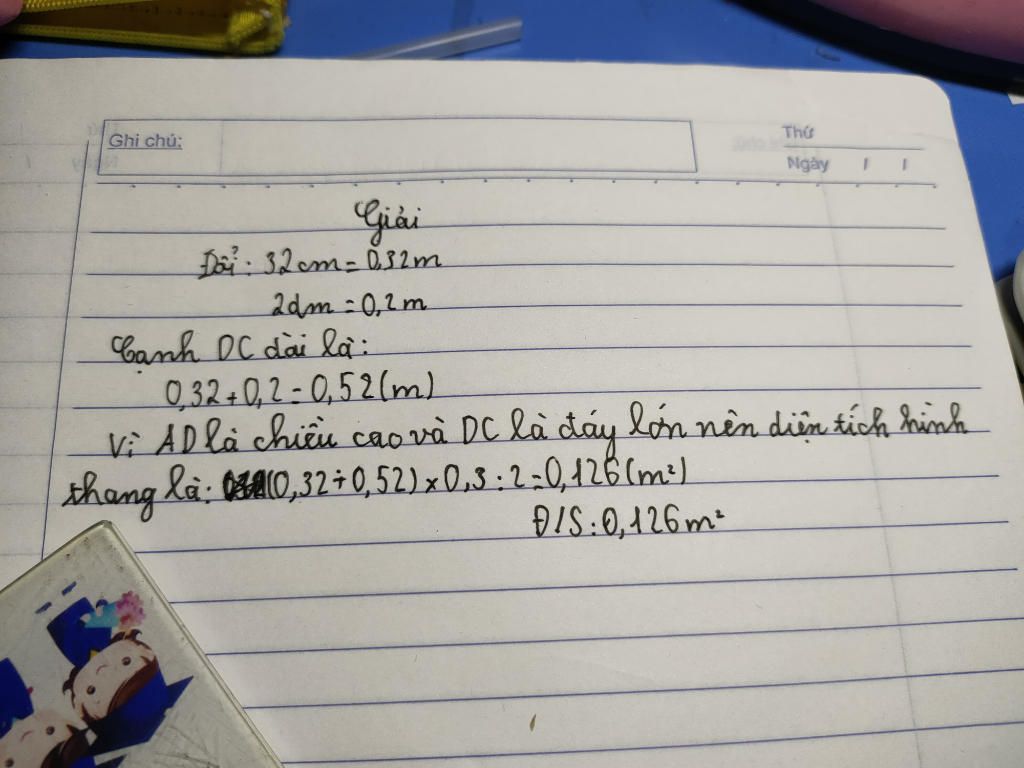 Ghi chú:
Thứ
Ngày / /
Giải
Đổi: 32cm = 0,32m
2dm = 0,2m
Cạnh DC dài là:
0,32 + 0,2 = 0,52 (m)
Vì AD là chiều cao và DC là đáy lớn nên diện tích hình
thang là: (0,32 + 0,52) × 0,3 : 2 = 0,126 (m²)
Đ/S: 0,126 m²